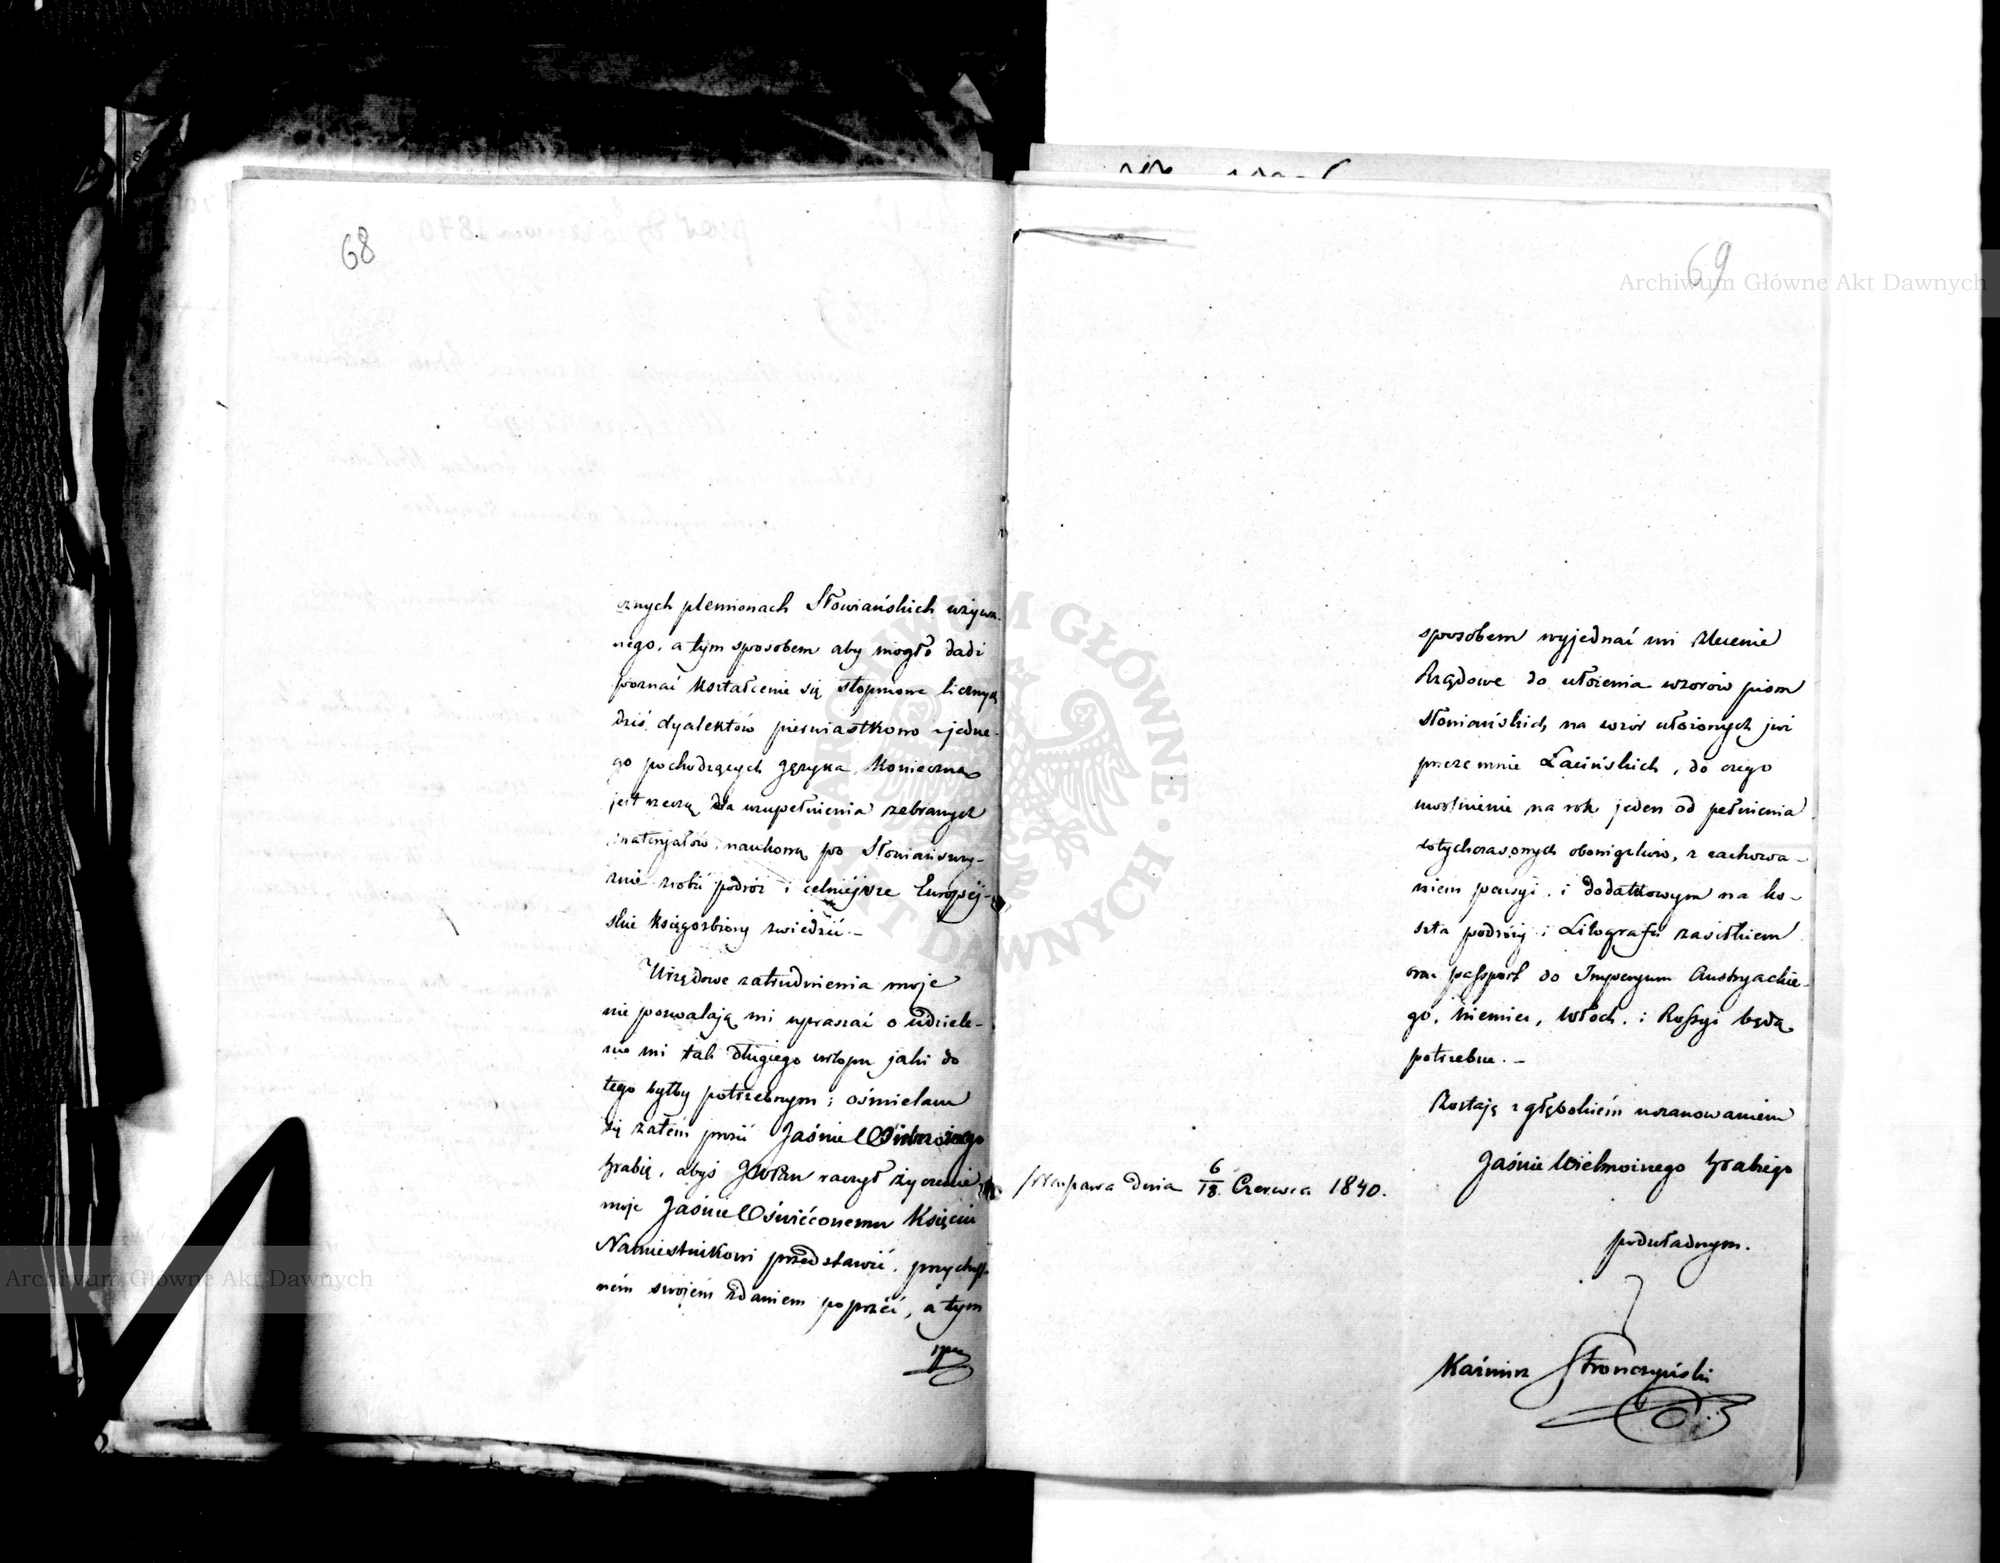 68
znych plemionach Słowiańskich używa-
nego, a tym sposobem aby mogło dadź
poznać kształcenie się stopniowe licznych
dziś dyalektów pierwiastkowo z jedne-
go pochodzących Języka, Konieczną
jest rzeczą dla uzupełnienia zebranych
materyałów naukową po Słowiańszczy-
znie zrobić podróż i celniejsze Europej-
skie księgozbiory zwiedzić. –
Urzędowe zatrudnienia moje
nie pozwalają mi upraszać o udziele-
nie mi tak długiego urlopu jaki do
tego byłby potrzebnym; ośmielam
się zatém prosić Jaśnie Wielmożnego
Hrabię, abyś JWPan raczył życzenie
moje Jaśnie Oświéconemu Księciu
Namiestnikowi przedstawić, przychyl-
ném swojém zdaniem poprzéć, a tym
69
sposobem wyjednać mi Zlecenie
Rządowe do ułożenia wzorów pism
Słowiańskich, na wzór ułożonych już
przezemnie Łacińskich, do czego
uwolnienie na rok jeden od pełnienia
dotychczasowych obowiązków, z zachowa-
niem pensyi, i dodatkowym na ko-
szta podróży i Litografii zasiłkiem
oraz passport do Imperyum Austryackie-
go, Niemiec, Włoch, i Rossyi będą
potrzebne. –
Zostaję z głębokiém uszanowaniem
Jaśnie Wielmożnego Hrabiego
Warszawa dnia 6/18 Czerwca 1840.
podwładnym.
Kaźmirz Stronczyński
Archiwum Główne Akt Dawnych
Archiwum Główne Akt Dawnych
ARCHIWUM GŁÓWNE AKT DAWNYCH